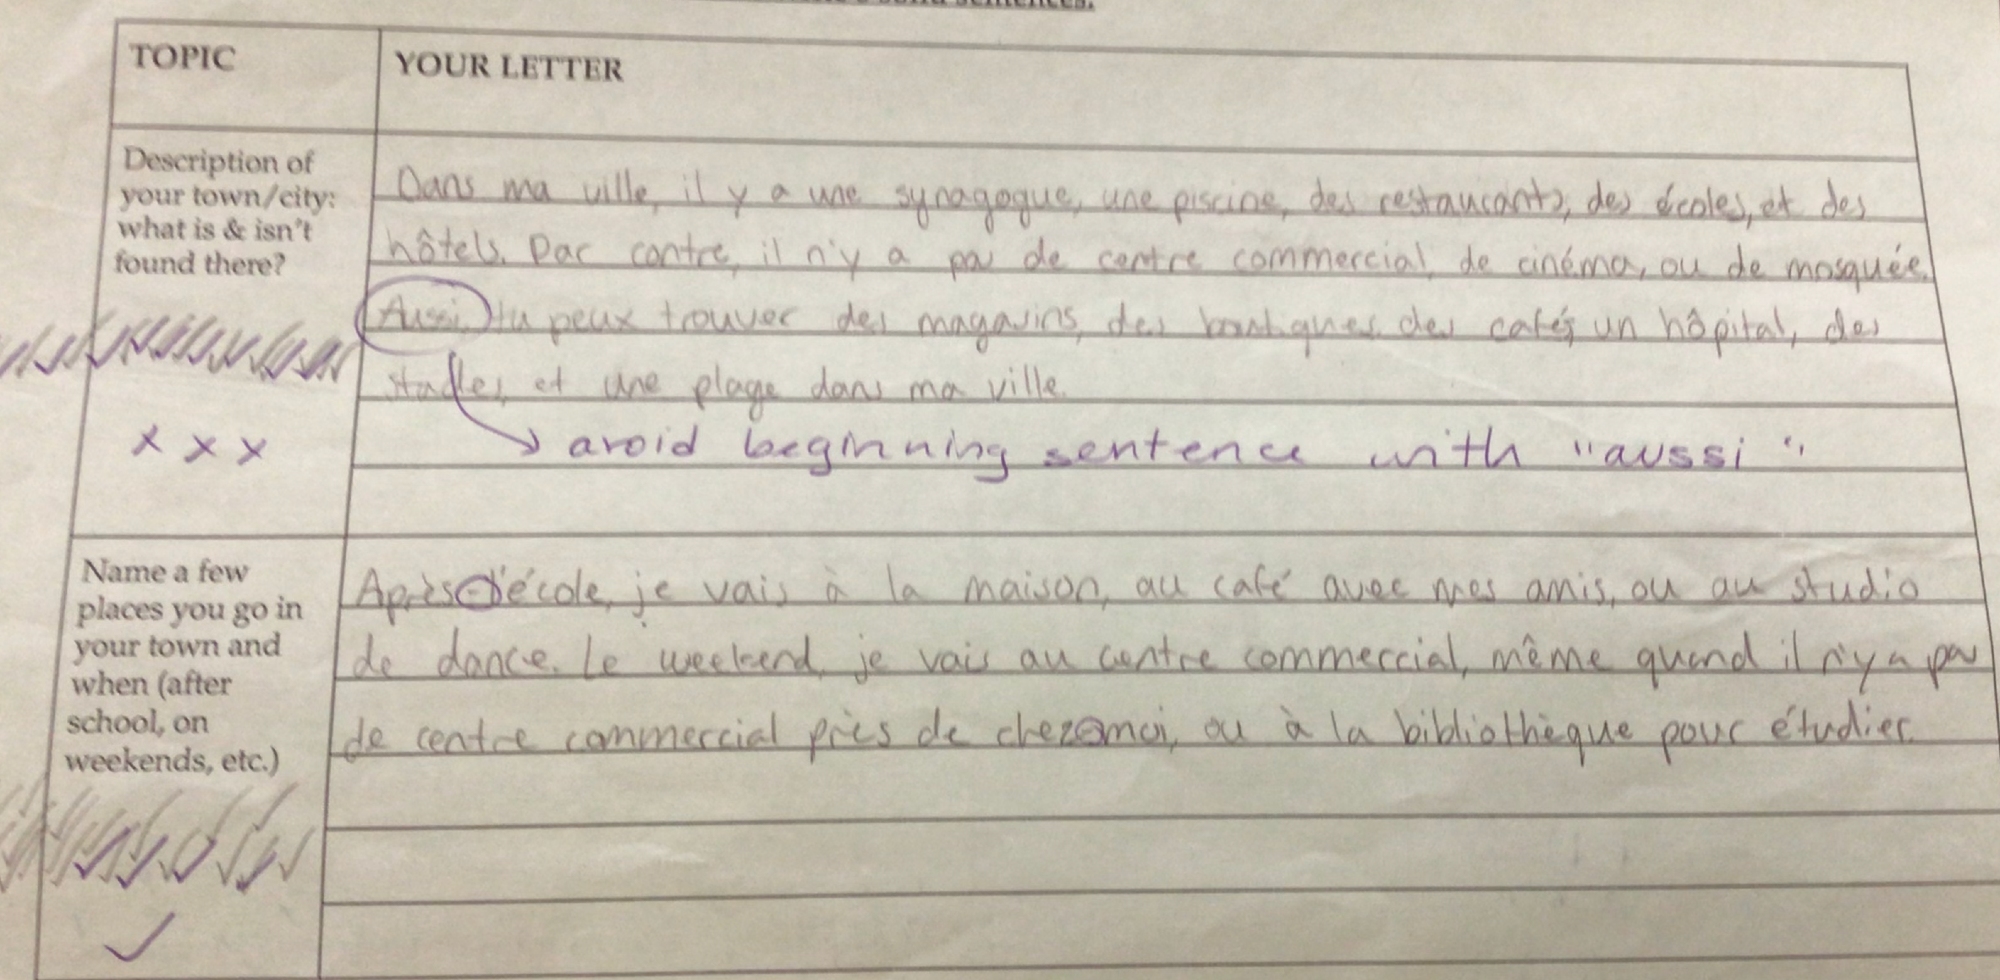 sentences.
TOPIC
YOUR LETTER
Description of
your town/city:
what is & isn't
found there?
Dans ma ville, il y a une synagogue, une piscine, des restaurants, des écoles, et des
hôtels. Par contre, il n'y a pas de centre commercial, de cinéma, ou de mosquée.
Aussi, tu peux trouver des magasins, des boutiques, des cafés, un hôpital, des
stades, et une plage dans ma ville.
x x x
avoid beginning sentence with "aussi"
Name a few
places you go in
your town and
when (after
school, on
weekends, etc.)
Après l'école, je vais à la maison, au café avec mes amis, ou au studio
de dance. Le weekend, je vais au centre commercial, même quand il n'y a pas
de centre commercial près de chez moi, ou à la bibliothèque pour étudier.